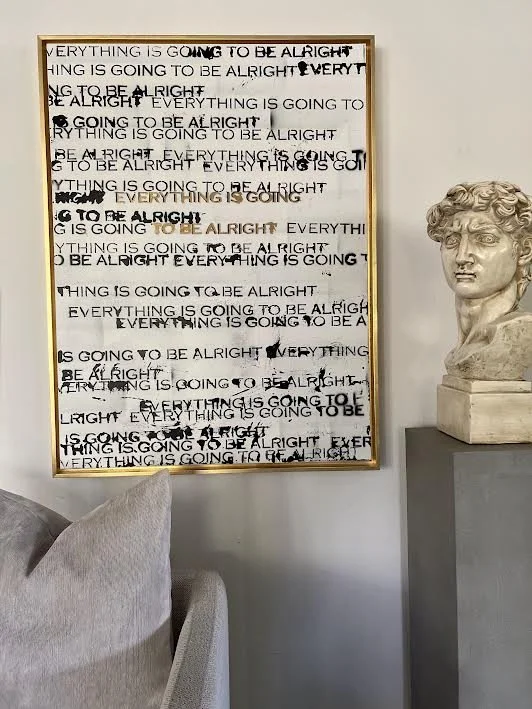 VERYTHING IS GOING TO BE ALRIGHT
HING IS GOING TO BE ALRIGHT EVERYT
NG TO BE ALRIGHT
BE ALRIGHT EVERYTHING IS GOING TO
S GOING TO BE ALRIGHT
RYTHING IS GOING TO BE ALRIGHT
BE ALRIGHT EVERYTHING IS GOING T
G TO BE ALRIGHT EVERYTHING IS GOI
YTHING IS GOING TO BE ALRIGHT
RIGHT EVERYTHING IS GOING
G TO BE ALRIGHT
G IS GOING TO BE ALRIGHT EVERYTHI
YTHING IS GOING TO BE ALRIGHT
O BE ALRIGHT EVERYTHING IS GOING T
THING IS GOING TO BE ALRIGHT
EVERYTHING IS GOING TO BE ALRIGH
EVERYTHING IS GOING TO BE A
IS GOING TO BE ALRIGHT EVERYTHING
BE ALRIGHT
VERYTHING IS GOING TO BE ALRIGHT
EVERYTHING IS GOING TO
LRIGHT EVERYTHING IS GOING TO BE
IS GOING TO BE ALRIGHT
THING IS GOING TO BE ALRIGHT EVER
VERYTHING IS GOING TO BE ALRIGHT